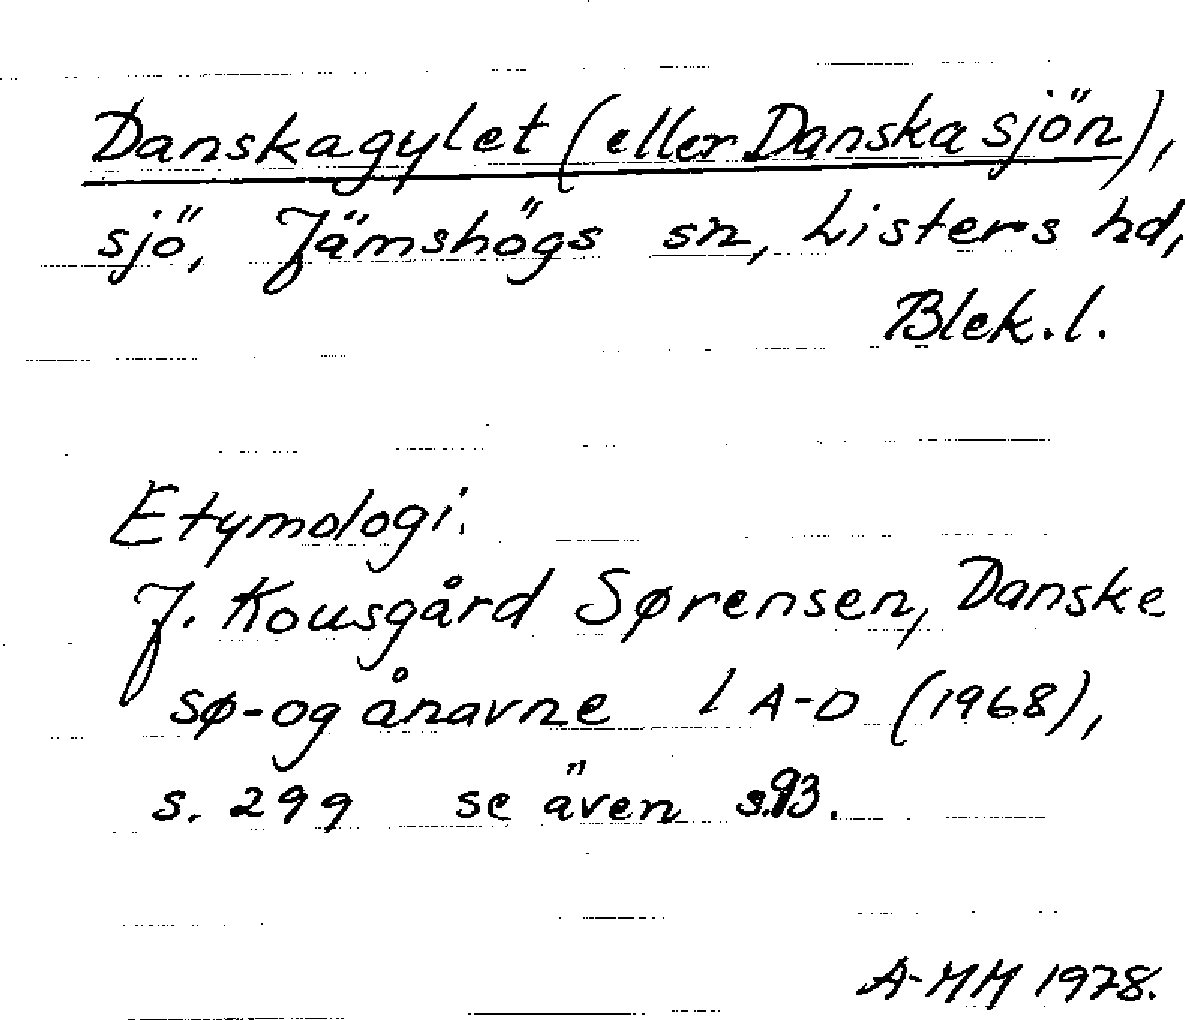 Danskagylet (eller Danska sjön),
sjö, Jämshögs sn, Listers hd,
Blek.l.
Etymologi:
J. Kousgård Sørensen, Danske
sø- og ånavne I A-D (1968),
s. 299 se även s.93.
A-MM 1978.